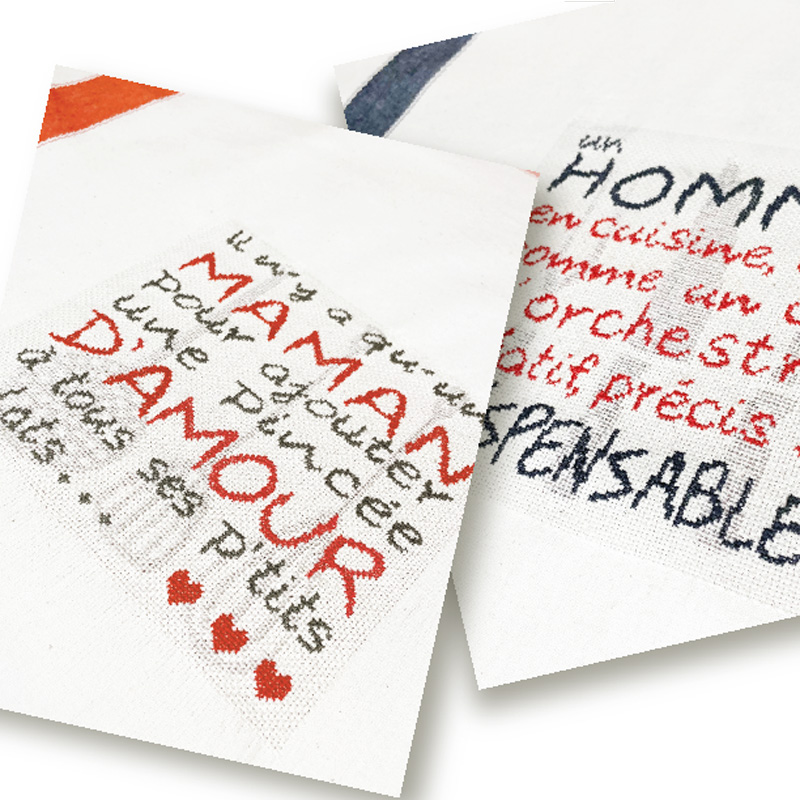 il n'y a qu'un
MAMAN
pour ajouter
une pincée
D'AMOUR
à tous ses p'tits
lots...
un
HOMM
en cuisine,
omme un
'orchestr
atif précis
SPENSABLE